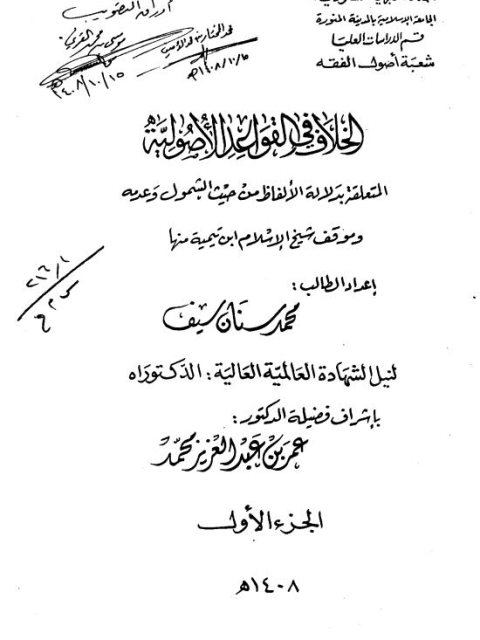 الجامعة الإسلامية بالمدينة المنورة
قسم الدراسات العليا
شعبة أصول الفقه
أوراق التصويب
١٤٠٨/١٠/١٥هـ
الخلاف في القواعد الأصولية
المتعلقة بدلالة الألفاظ من حيث الشمول وعدمه
وموقف شيخ الإسلام ابن تيمية منها
إعداد الطالب:
محمد سنان سيف
لنيل الشهادة العالمية العالية: الدكتوراه
بإشراف فضيلة الدكتور:
عمر بن عبد العزيز محمد
الجزء الأول
١٤٠٨هـ